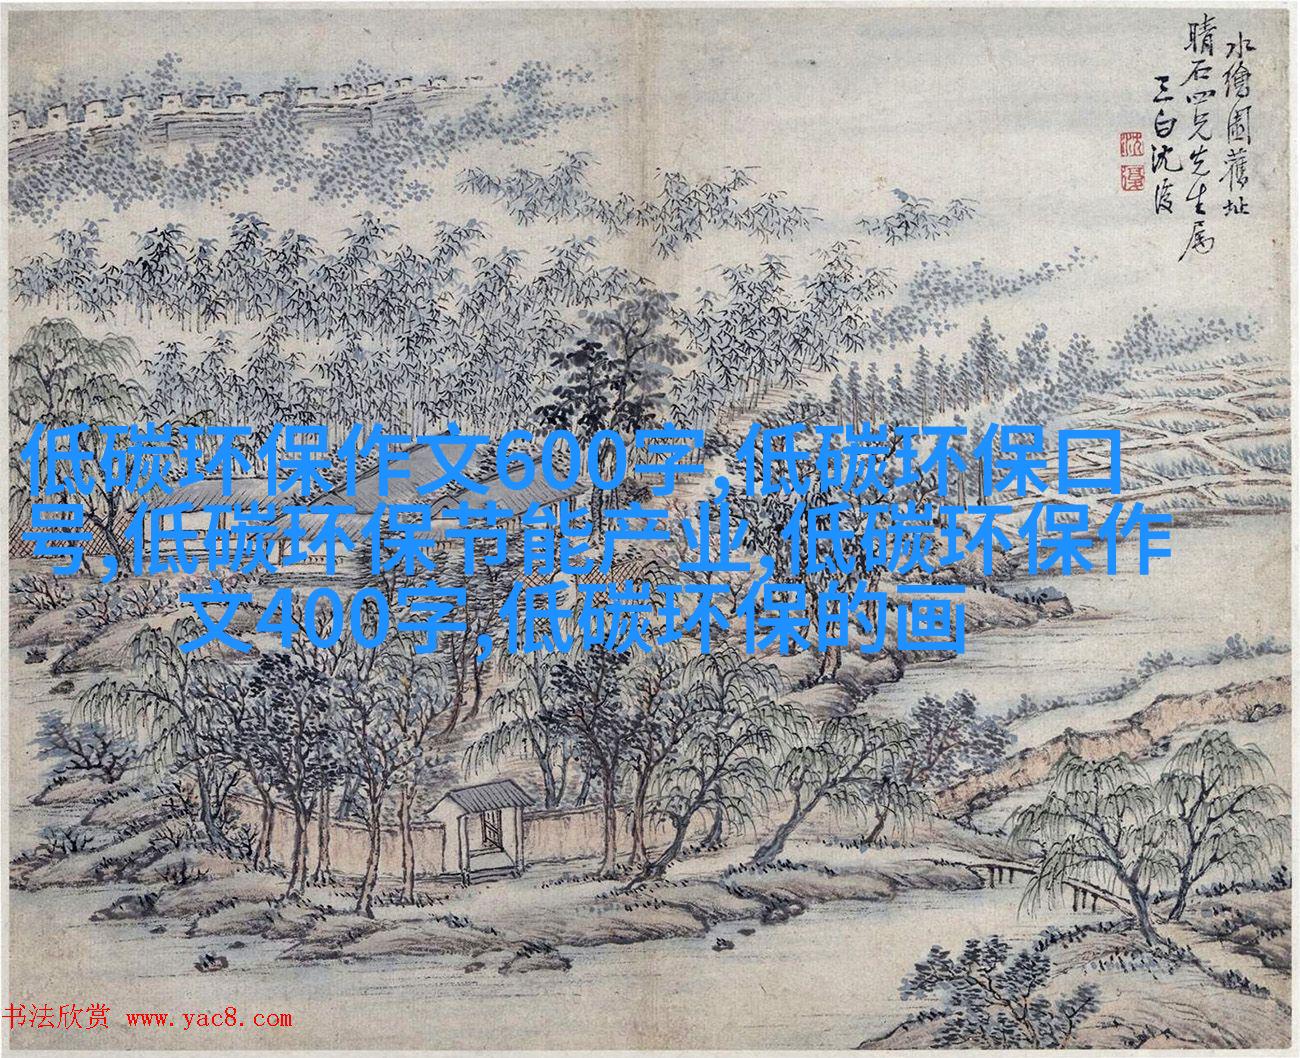 水繪園舊址
晴石四兄先生属
三白沈復
沈
復
低碳环保作文600字,低碳环保口
号,低碳环保节能产业,低碳环保作
文400字,低碳环保的画
书法欣赏 www.yac8.com